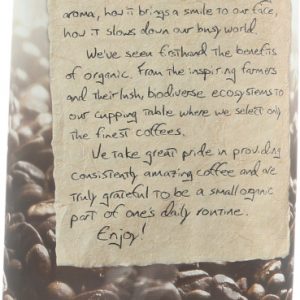 aroma, how it brings a smile to our face,
how it slows down our busy world.
We've seen firsthand the benefits
of organic. From the inspiring farmers
and their lush, biodiverse ecosystems to
our cupping table where we select only
the finest coffees.
We take great pride in providing
consistently amazing coffee and are
truly grateful to be a small organic
part of one's daily routine.
Enjoy!